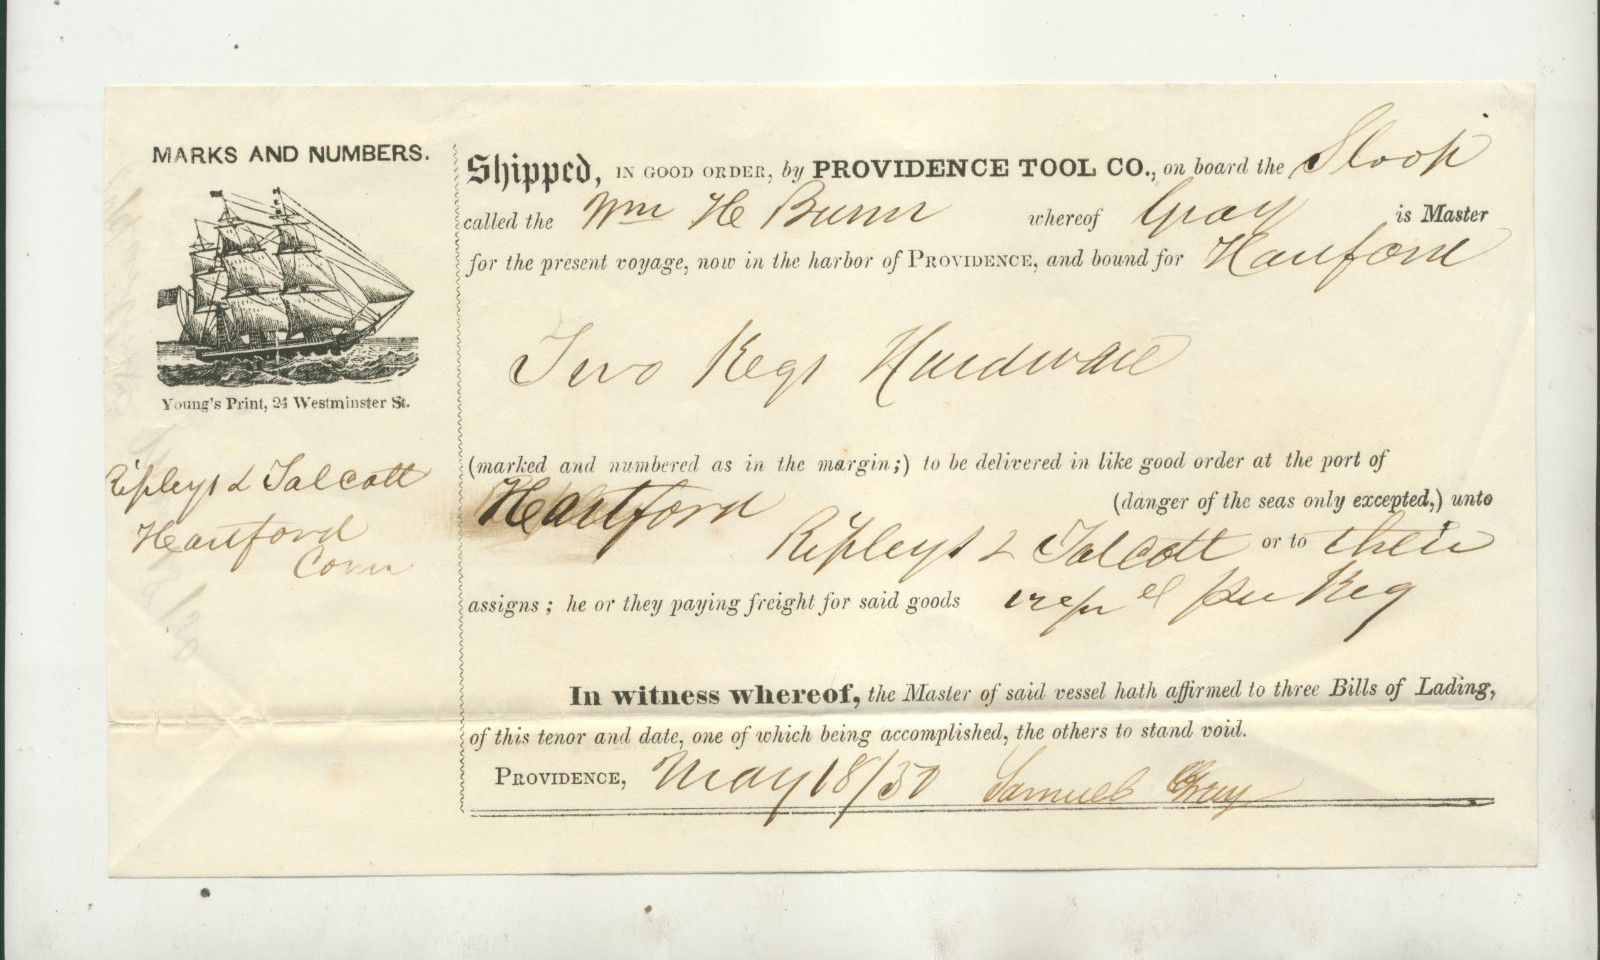 MARKS AND NUMBERS.
Young's Print, 24 Westminster St.
Ripleys & Talcott
Hartford
Conn
Shipped, IN GOOD ORDER, by PROVIDENCE TOOL CO., on board the Sloop
called the Wm H Burr whereof Gray is Master
for the present voyage, now in the harbor of PROVIDENCE, and bound for Hartford
Two Kegs Hardware
(marked and numbered as in the margin;) to be delivered in like good order at the port of
Hartford (danger of the seas only excepted,) unto
Ripleys & Talcott or to their
assigns; he or they paying freight for said goods per Keg
In witness whereof, the Master of said vessel hath affirmed to three Bills of Lading,
of this tenor and date, one of which being accomplished, the others to stand void.
PROVIDENCE, May 18/50 Samuel Gray